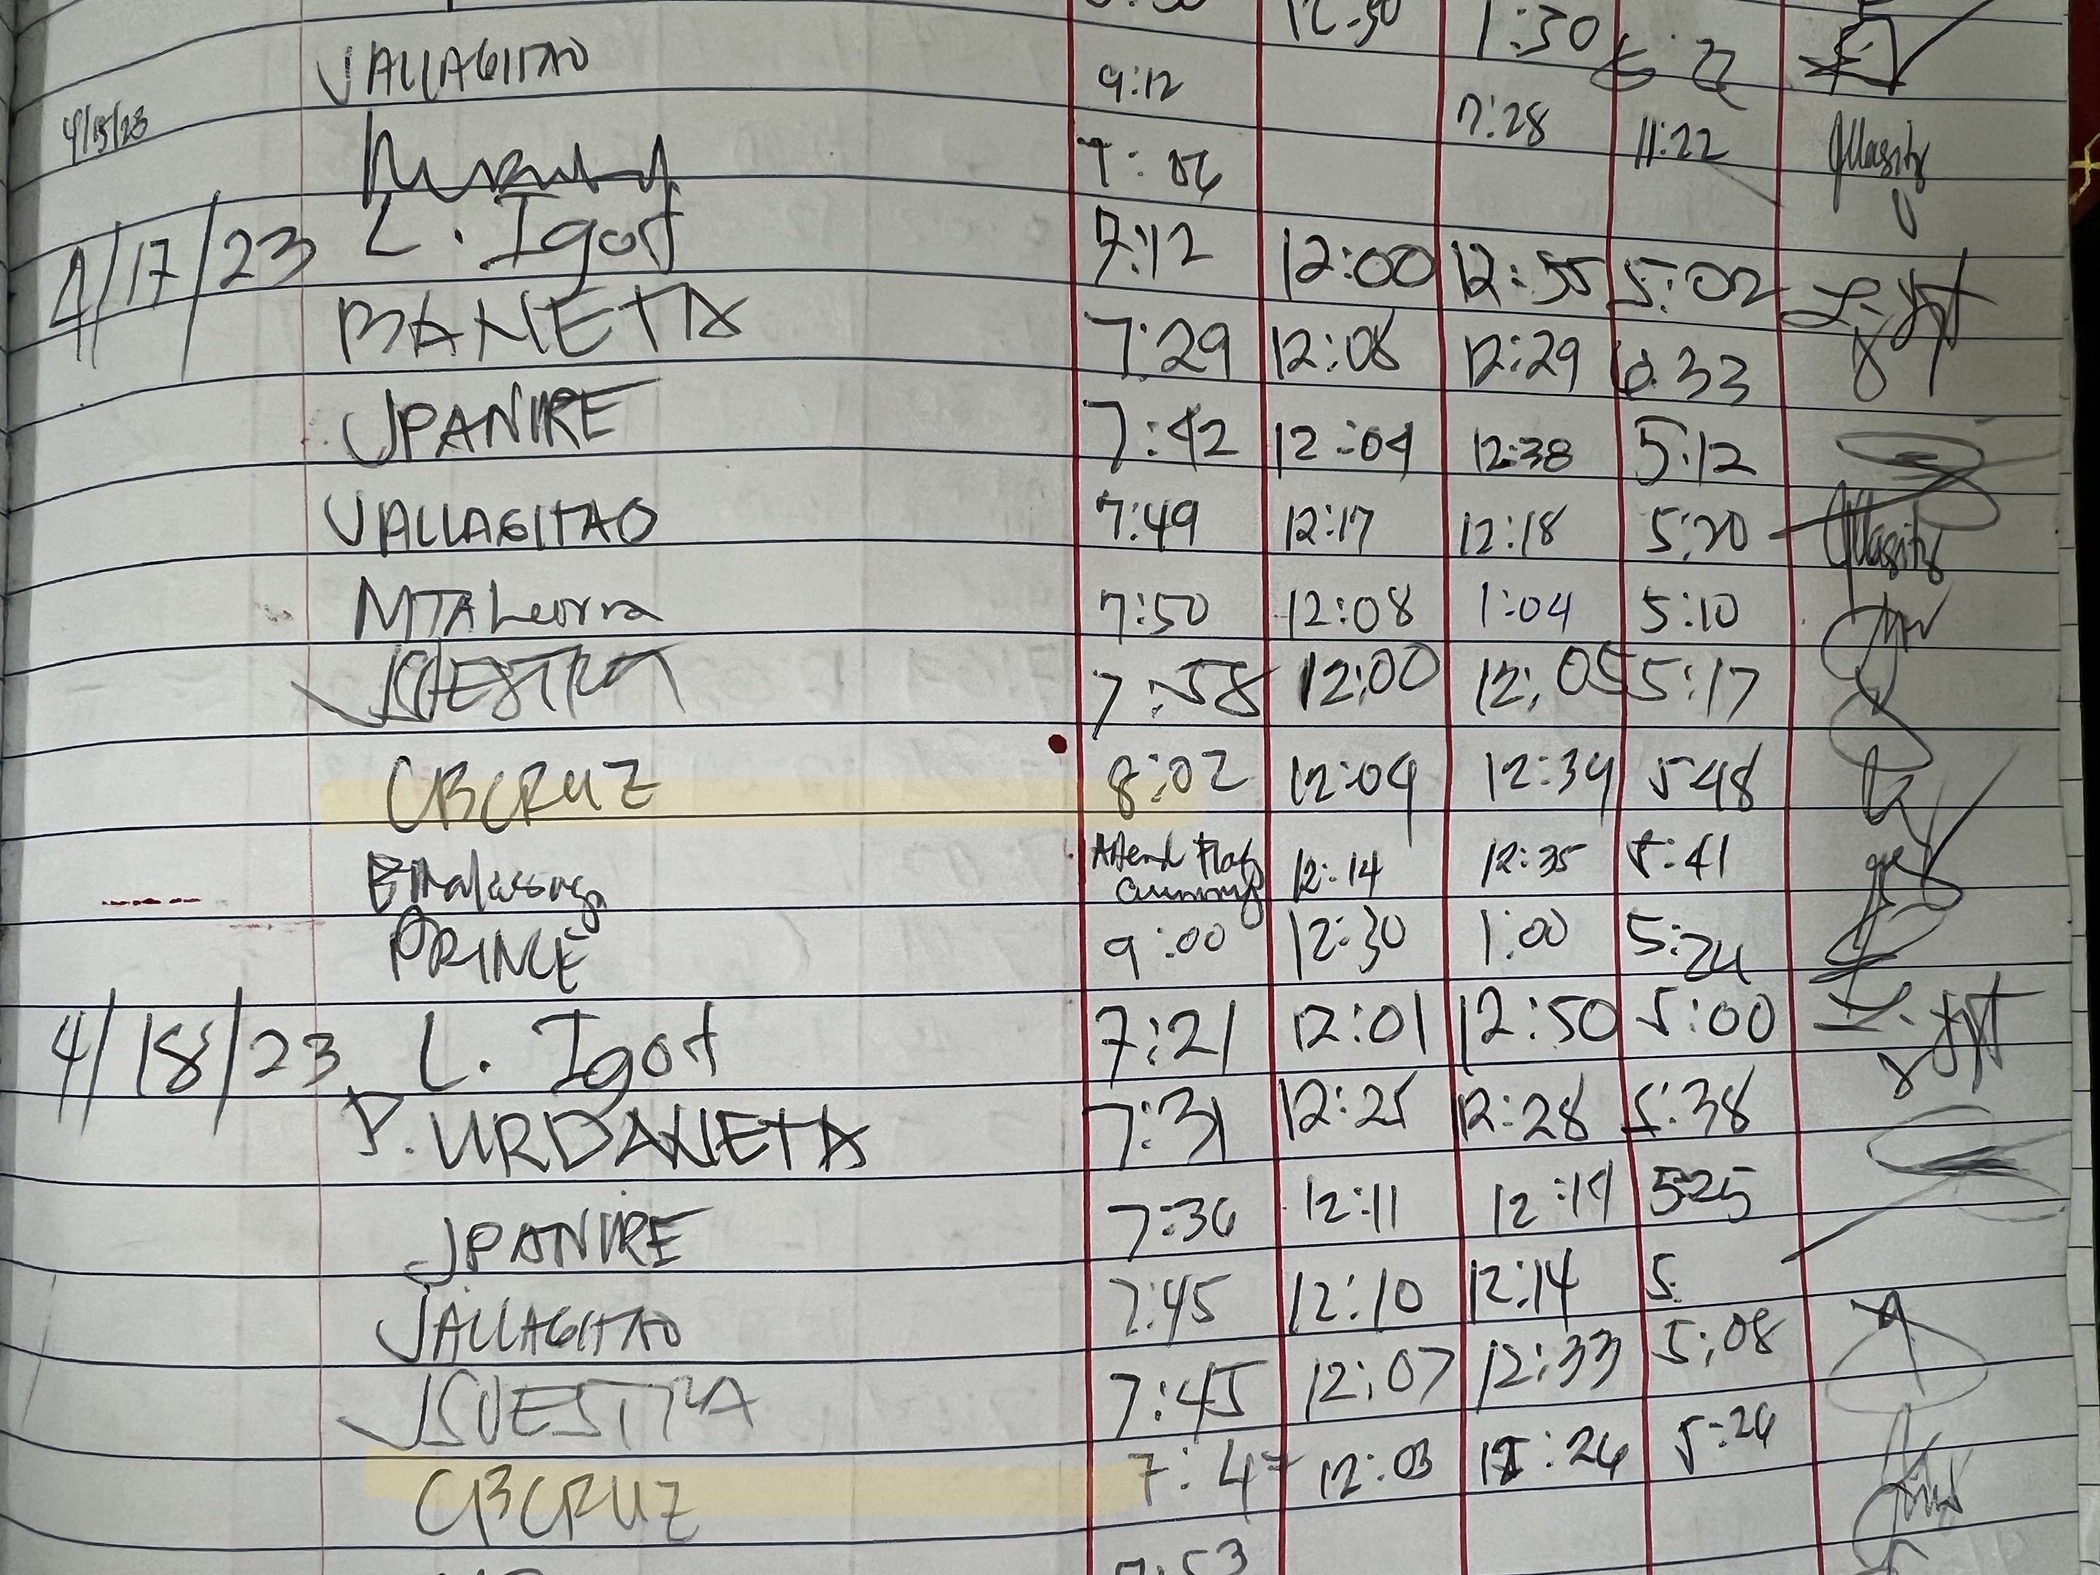 12:30 1:30
JALLAGITAO 9:12
4/15/23 7:06 7:28 11:22
4/17/23 L. Igot 7:12 12:00 12:55 5:02
BANETA 7:29 12:08 12:29 6:33
JPANIRE 7:42 12:04 12:38 5:12
JALLAGITAO 7:49 12:17 12:18 5:20
7:50 12:08 1:04 5:10
7:58 12:00 12:05 5:17
CBCRUZ 8:02 12:04 12:34 5:48
Attend Flag 12:14 12:35 5:41
PRINCE 9:00 12:30 1:00 5:24
4/18/23 L. Igot 7:21 12:01 12:50 5:00
P. URDANETA 7:31 12:25 12:28 5:38
JPANIRE 7:36 12:11 12:14 5:25
JALLAGITAO 7:45 12:10 12:14 5:
JSUESTRA 7:45 12:07 12:33 5:08
CBCRUZ 7:47 12:03 12:26 5:26
7:53